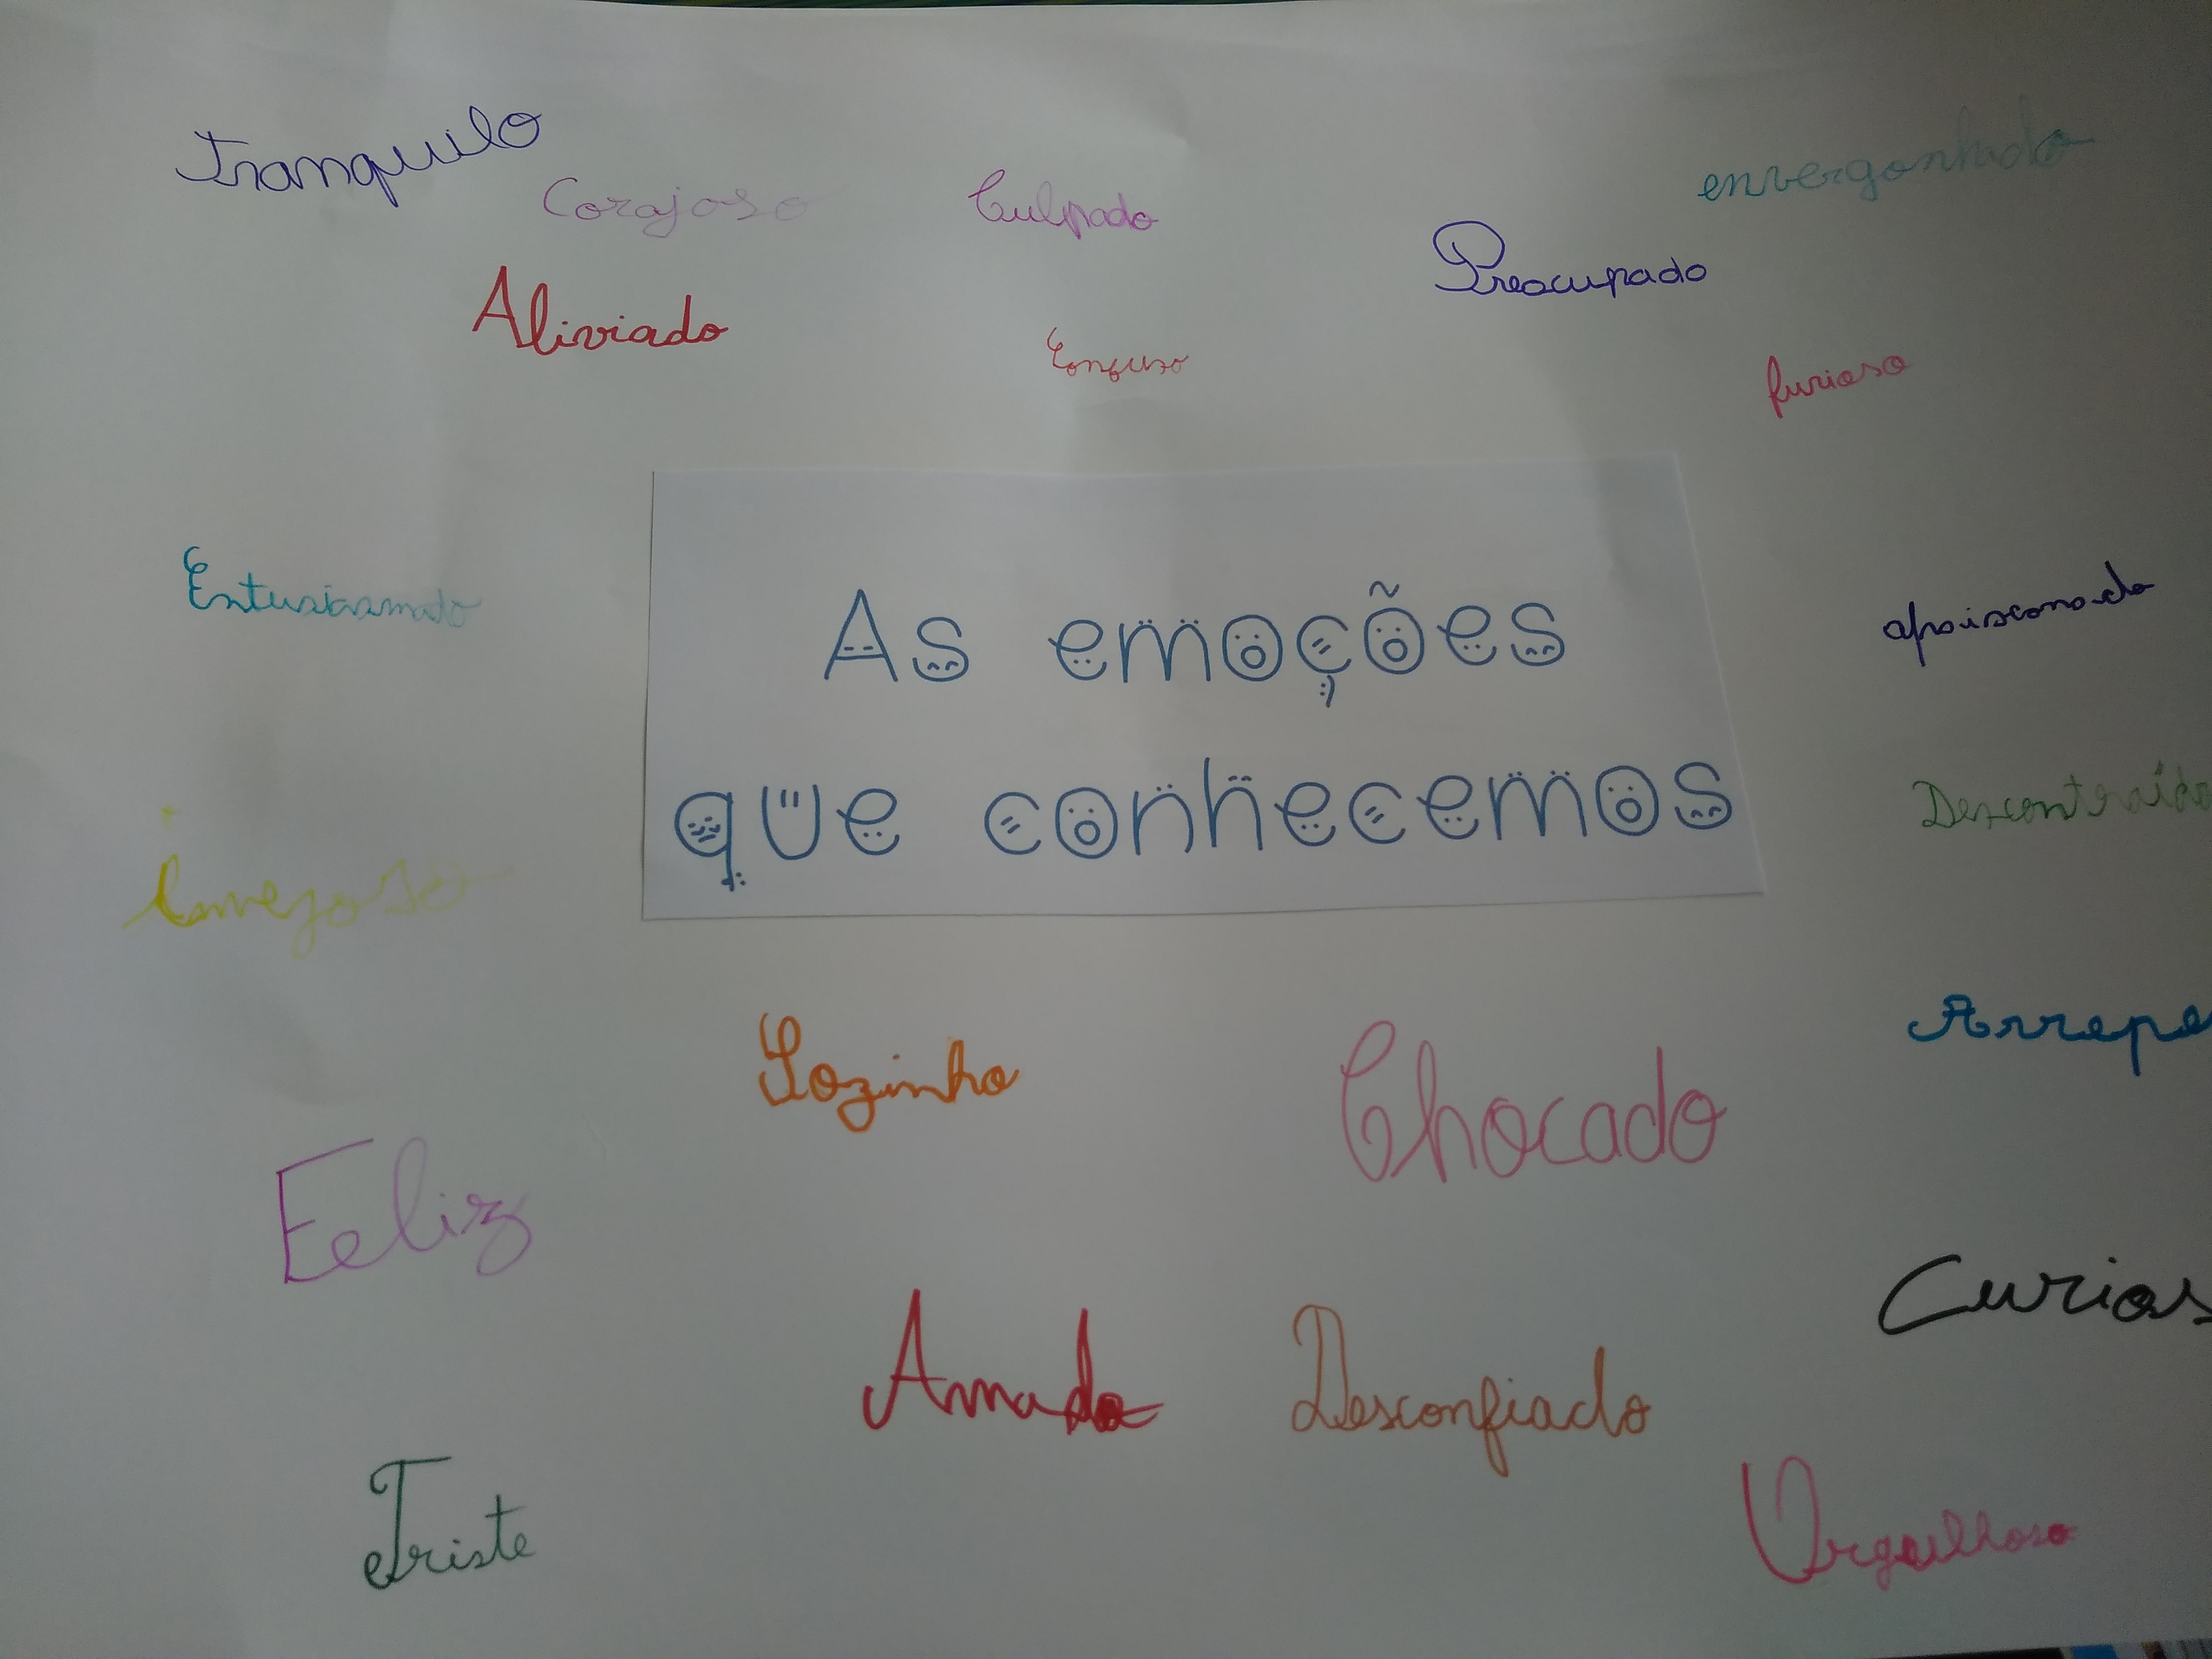 Tranquilo
envergonhado
Corajoso
Culpado
Preocupado
Aliviado
Confuso
furioso
As emoções
que conhecemos
Entusiasmado
apaixonado
Descontraído
invejoso
Arrepe
Sozinho
Chocado
Feliz
Curios
Amado
Desconfiado
Triste
Orgulhoso